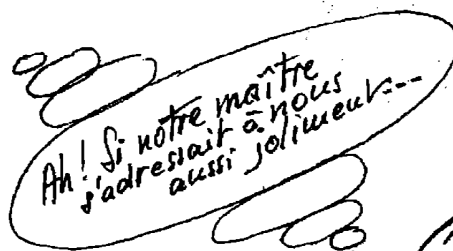 Ah! Si notre maître
s'adressait à nous
aussi joliment---